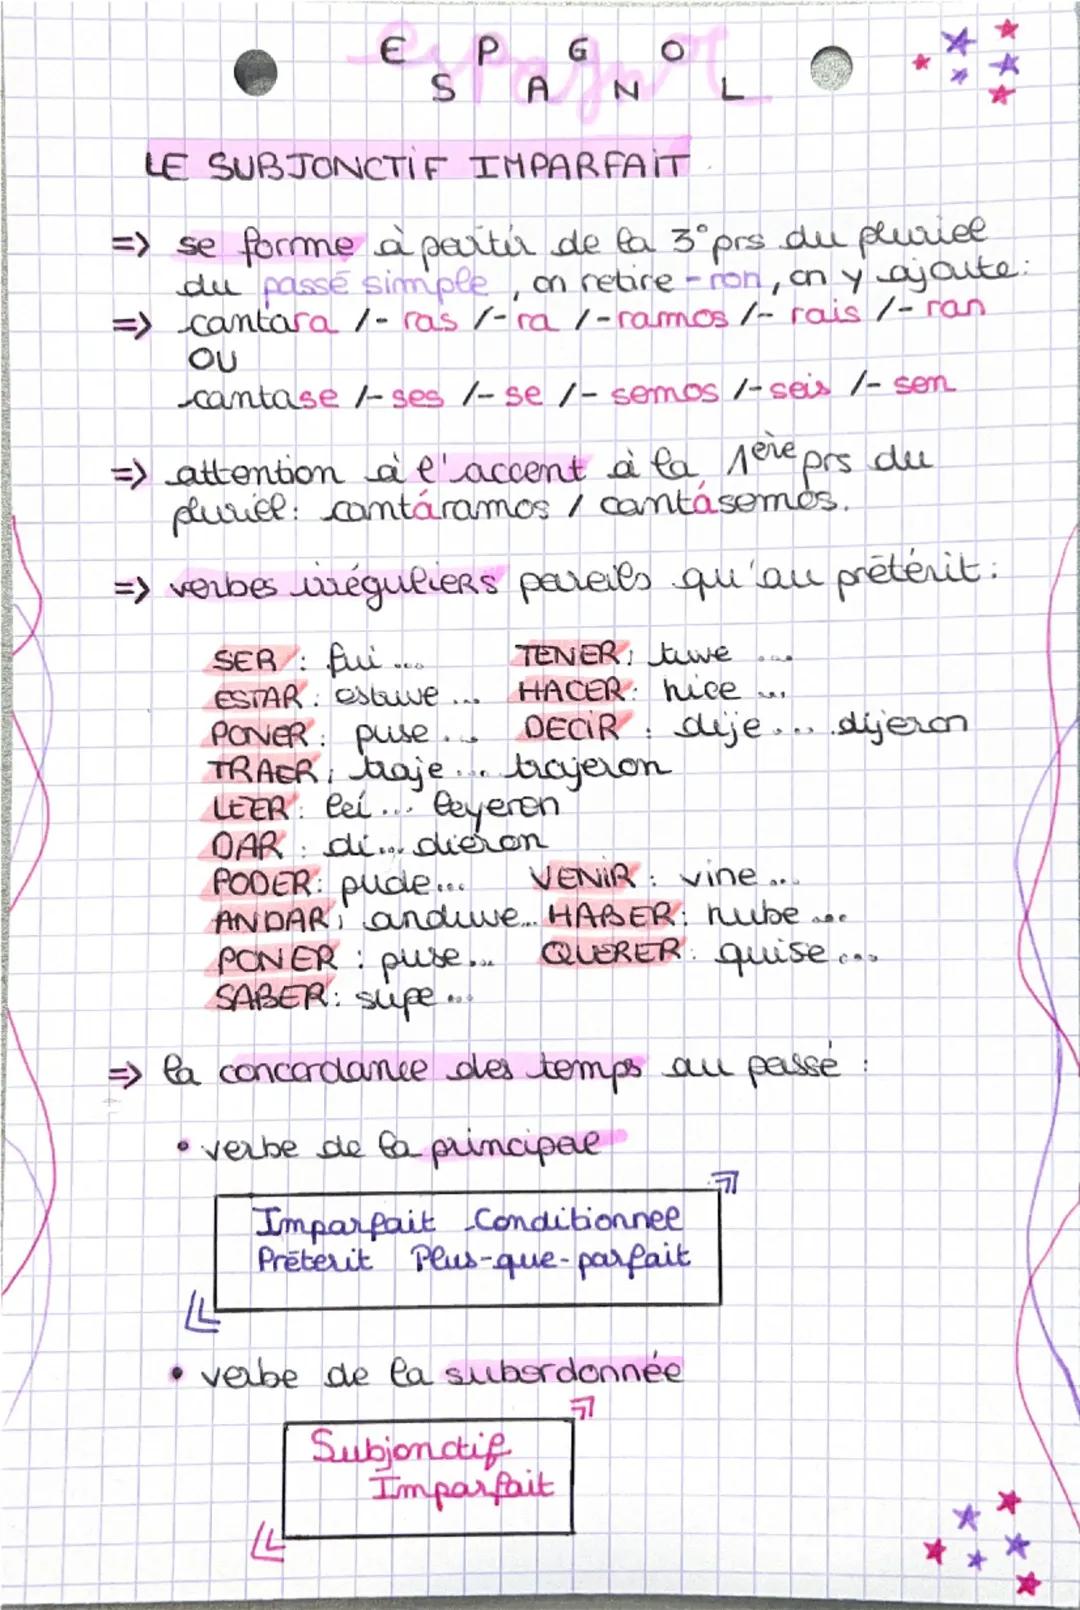 espagnol
ESPAGNOL
LE SUBJONCTIF IMPARFAIT
=> se forme à partir de la 3° prs du pluriel
du passé simple, on retire -ron, on y ajoute:
=> cantara /- ras /-ra /-ramos /- rais /- ran
OU
cantase /- ses /- se /- semos /- seis /- sen
=> attention à l'accent à la 1ère prs du
pluriel: cantáramos / cantásemos.
=> verbes irréguliers pareils qu'au prétérit:
SER : fui ... TENER: tuve ...
ESTAR: estuve ... HACER: hice ...
PONER: puse ... DECIR : dije ... dijeron
TRAER: traje ... trajeron
LEER: leí ... leyeron
DAR : di ... dieron
PODER: pude ... VENIR : vine ...
ANDAR: anduve ... HABER: hube ...
PONER : puse ... QUERER: quise ...
SABER: supe ...
=> la concordance des temps au passé :
• verbe de la principale
Imparfait Conditionnel
Préterit Plus-que-parfait
• verbe de la subordonnée
Subjonctif
Imparfait